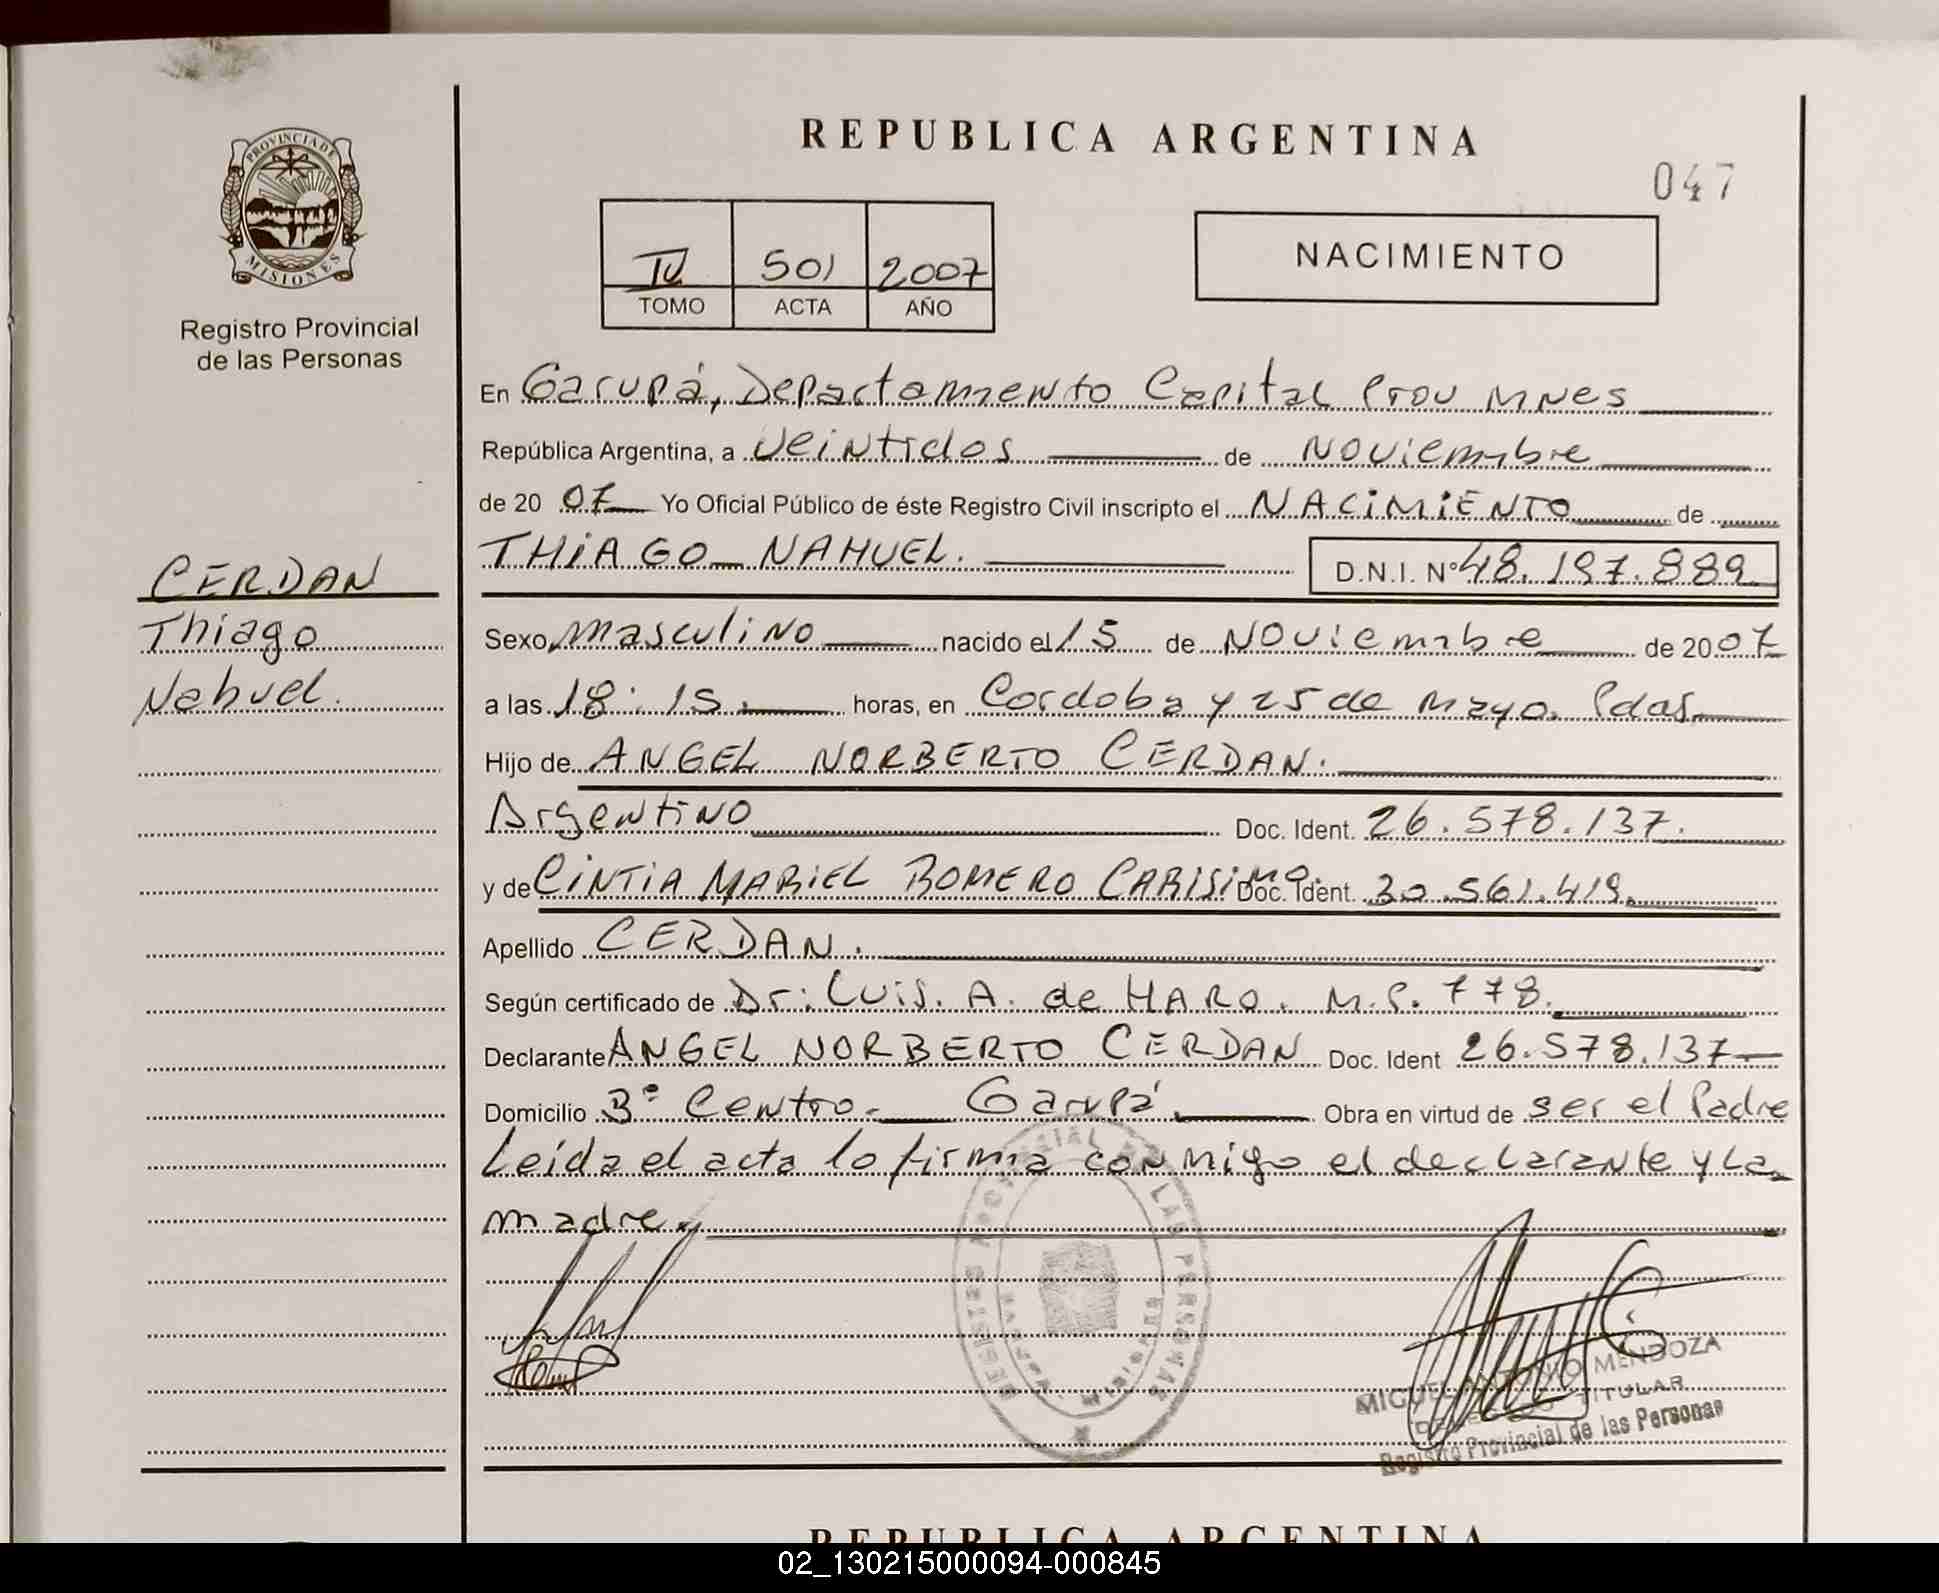 REPUBLICA ARGENTINA
047
PROVINCIA DE
MISIONES
Registro Provincial
de las Personas
IV 501 2007
TOMO ACTA AÑO
NACIMIENTO
En Garupá, Departamento Capital Prov MNes
República Argentina, a Veintidos de Noviembre
de 2007 Yo Oficial Público de éste Registro Civil inscripto el NACIMIENTO de
THIAGO NAHUEL.
D.N.I. Nº 48.197.889
CERDAN
Thiago
Nahuel.
Sexo masculino nacido el 15 de Noviembre de 2007
a las 18:15. horas, en Cordoba y 25 de Mayo. Pdas.
Hijo de ANGEL NORBERTO CERDAN.
Argentino Doc. Ident. 26.578.137.
y de CINTIA MARIEL ROMERO CARISIMO. Doc. Ident. 30.561.419.
Apellido CERDAN.
Según certificado de Dr: Luis. A. de HARO. M.P. 778.
Declarante ANGEL NORBERTO CERDAN Doc. Ident 26.578.137
Domicilio Bº Centro. Garupá. Obra en virtud de ser el Padre
Leida el acta lo firma conmigo el declarante y La
madre.
REGISTRO PROVINCIAL DE LAS PERSONAS
MIGUEL ANTONIO MENDOZA
TITULAR
Registro Provincial de las Personas
REPUBLICA ARGENTINA
02_130215000094-000845